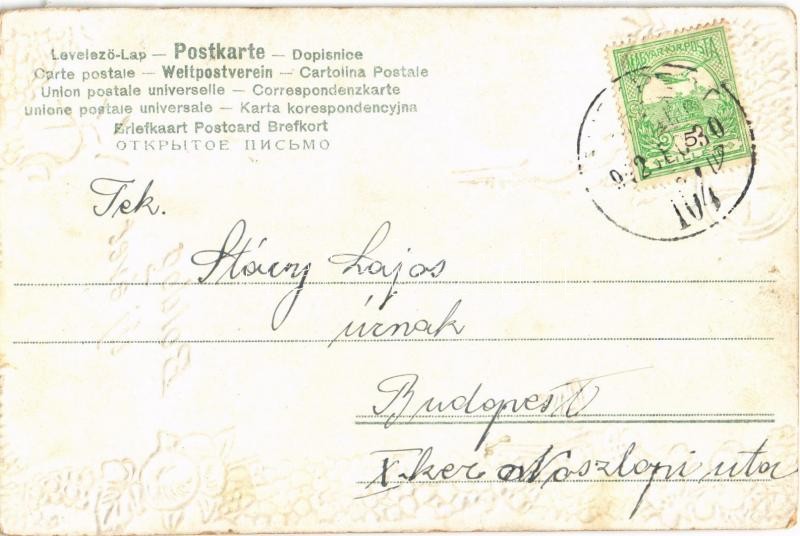 Levelező-Lap — Postkarte — Dopisnice
Carte postale — Weltpostverein — Cartolina Postale
Union postale universelle — Correspondenzkarte
Unione postale universale — Karta korespondencyjna
Briefkaart Postcard Brefkort
ОТКРЫТОЕ ПИСЬМО
MAGYAR KIR. POSTA
5
Tek.
Stáczy Lajos
úrnak
Budapest
X ker Noszlopi utca